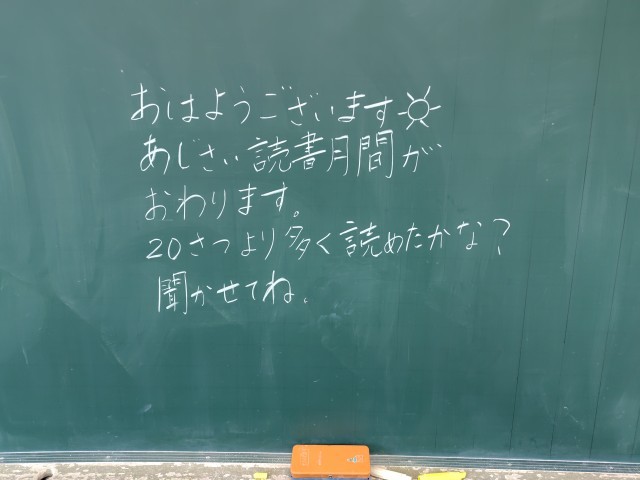 おはようございます☀
あじさい読書月間が
おわります。
20さつより多く読めたかな?
聞かせてね。